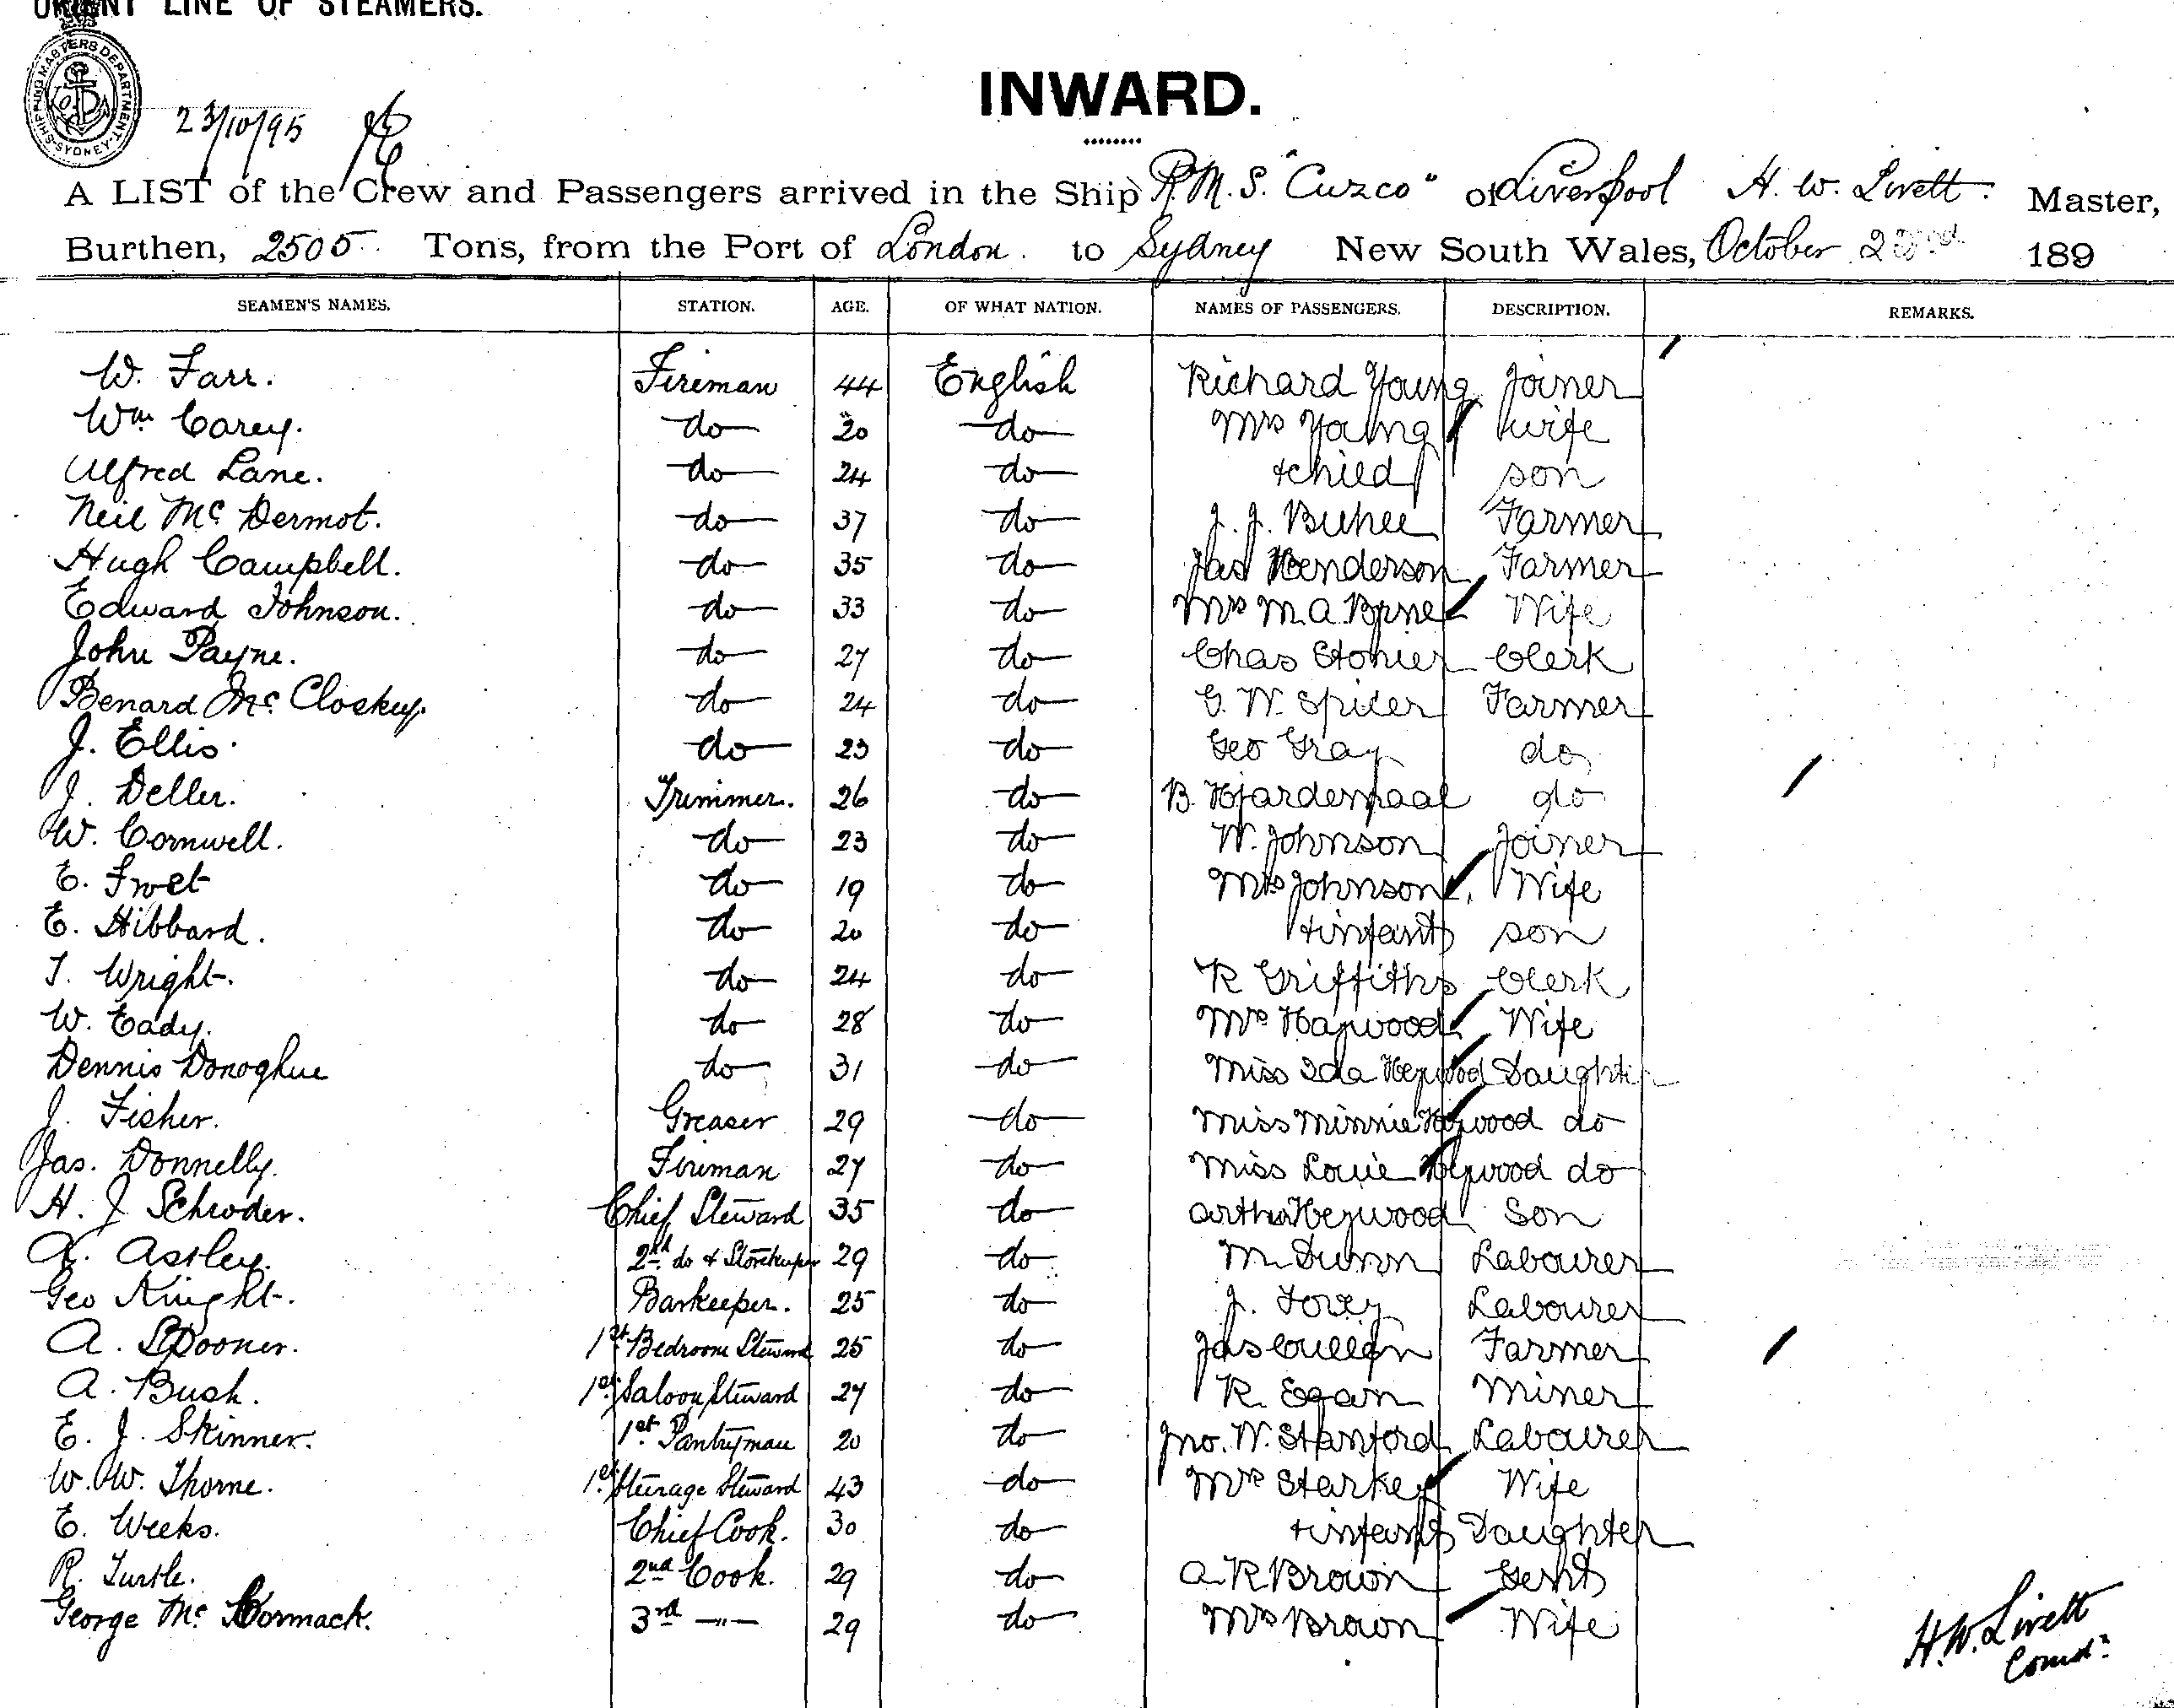 ORIENT LINE OF STEAMERS.
SHIPPING MASTERS DEPARTMENT SYDNEY
23/10/95
INWARD.
A LIST of the Crew and Passengers arrived in the Ship R.M.S. "Cuzco" of Liverpool H. W. Livett. Master,
Burthen, 2505 Tons, from the Port of London. to Sydney New South Wales, October 23rd 189
SEAMEN'S NAMES. STATION. AGE. OF WHAT NATION. NAMES OF PASSENGERS. DESCRIPTION. REMARKS.
W. Farr. Fireman 44 English Richard Young Joiner
Wm Carey. do 20 do Mrs Young wife
Alfred Lane. do 24 do + child son
Neil Mc Dermot. do 37 do J. J. Farmer
Hugh Campbell. do 35 do Jas Henderson Farmer
Edward Johnson. do 33 do Mrs M. A. Byrne Wife
John Payne. do 27 do Chas Stonier Clerk
Benard Mc Closkey. do 24 do G. W. Spicer Farmer
J. Ellis. do 23 do Geo Gray do
J. Deller. Trimmer. 26 do B. do
W. Cornwell. do 23 do W. Johnson Joiner
E. do 19 do Mrs Johnson. Wife
E. Hibbard. do 20 do + infant son
T. Wright. do 24 do R Griffiths Clerk
W. Eady. do 28 do Mrs Haywood Wife
Dennis Donoghue do 31 do Miss Ida Heywood Daughter
J. Fisher. Greaser 29 do Miss Minnie Heywood do
Jas. Donnelly. Fireman 27 do Miss Louie Heywood do
H. J Schroder. Chief Steward 35 do Arthur Heywood Son
A. Astley. 2nd do & Storekeeper 29 do M. Dunn Labourer
Geo Knight. Barkeeper. 25 do J. Tovey Labourer
A. Spooner. 1st Bedroom Steward 25 do Jas Cullen Farmer
A. Bush. 1st Saloon Steward 27 do R. Egan Miner
E. J. Skinner. 1st Pantryman 20 do Jno. W. Stanford Labourer
W. W. Thorne. 1st Steerage Steward 43 do Mrs Starkey Wife
E. Weeks. Chief Cook. 30 do + infant Daughter
R. Turtle. 2nd Cook. 29 do A. R Brown Gent
George Mc Cormack. 3rd —"— 29 do Mrs Brown Wife
H. W. Livett
Comdr